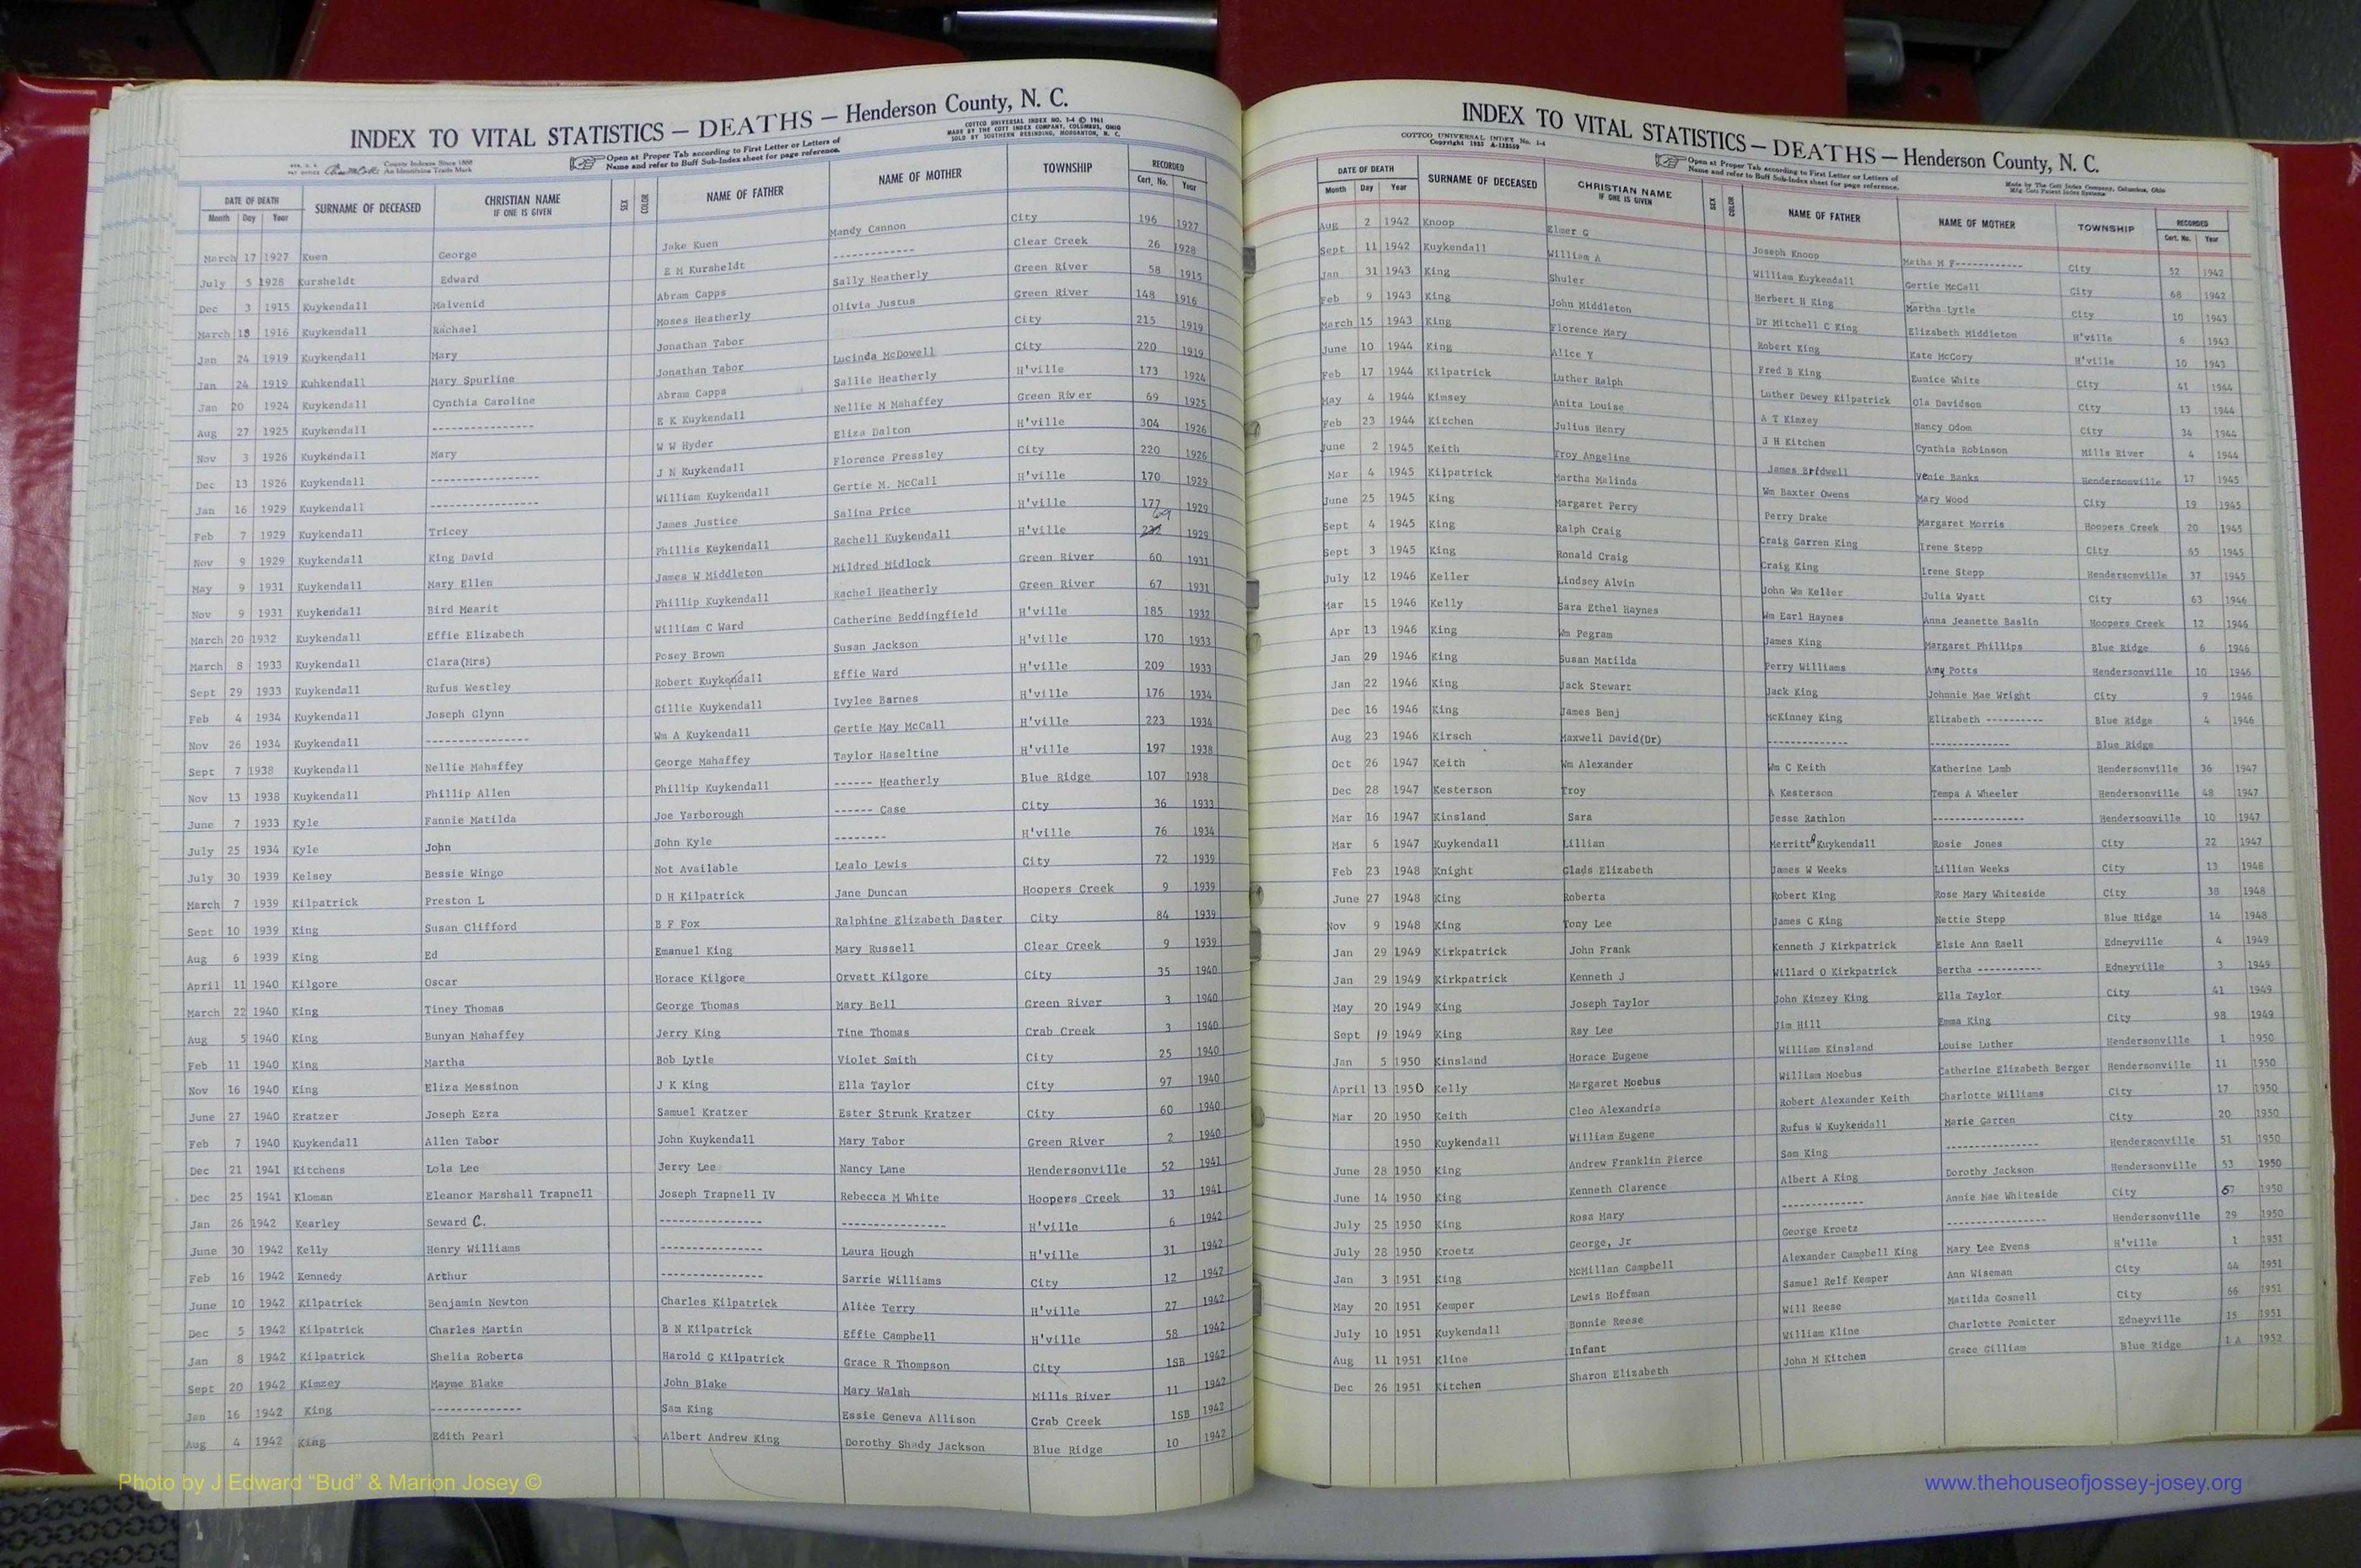 INDEX TO VITAL STATISTICS — DEATHS — Henderson County, N. C.
COTTCO UNIVERSAL INDEX NO. 1-4 © 1961
MADE BY THE COTT INDEX COMPANY, COLUMBUS, OHIO
SOLD BY SOUTHERN REBINDING, MORGANTON, N. C.
County Indexes Since 1888
An Identifying Trade Mark
Open at Proper Tab according to First Letter or Letters of
Name and refer to Buff Sub-Index sheet for page reference.
DATE OF DEATH SURNAME OF DECEASED CHRISTIAN NAME IF ONE IS GIVEN SEX COLOR NAME OF FATHER NAME OF MOTHER TOWNSHIP RECORDED
Month Day Year Cert. No. Year
March 17 1927 Kuen George Jake Kuen Mandy Cannon City 196 1927
July 5 1928 Kursheldt Edward E M Kursheldt --------- Clear Creek 26 1928
Dec 3 1915 Kuykendall Malvenid Abram Capps Sally Heatherly Green River 58 1915
March 18 1916 Kuykendall Rachael Moses Heatherly Olivia Justus Green River 148 1916
Jan 24 1919 Kuykendall Mary Jonathan Tabor City 215 1919
Jan 24 1919 Kuhkendall Mary Spurline Jonathan Tabor Lucinda McDowell City 220 1919
Jan 20 1924 Kuykendall Cynthia Caroline Abram Capps Sallie Heatherly H'ville 173 1924
Aug 27 1925 Kuykendall -------------- E K Kuykendall Nellie M Mahaffey Green River 69 1925
Nov 3 1926 Kuykendall Mary W W Hyder Eliza Dalton H'ville 304 1926
Dec 13 1926 Kuykendall -------------- J N Kuykendall Florence Pressley City 220 1926
Jan 16 1929 Kuykendall -------------- William Kuykendall Gertie M. McCall H'ville 170 1929
Feb 7 1929 Kuykendall Tricey James Justice Salina Price H'ville 177 1929
Nov 9 1929 Kuykendall King David Phillis Kuykendall Rachell Kuykendall H'ville 69 1929
May 9 1931 Kuykendall Mary Ellen James W Middleton Mildred Midlock Green River 60 1931
Nov 9 1931 Kuykendall Bird Mearit Phillip Kuykendall Rachel Heatherly Green River 67 1931
March 20 1932 Kuykendall Effie Elizabeth William C Ward Catherine Beddingfield H'ville 185 1932
March 8 1933 Kuykendall Clara(Mrs) Posey Brown Susan Jackson H'ville 170 1933
Sept 29 1933 Kuykendall Rufus Westley Robert Kuykendall Effie Ward H'ville 209 1933
Feb 4 1934 Kuykendall Joseph Glynn Gillie Kuykendall Ivylee Barnes H'ville 176 1934
Nov 26 1934 Kuykendall -------------- Wm A Kuykendall Gertie May McCall H'ville 223 1934
Sept 7 1938 Kuykendall Nellie Mahaffey George Mahaffey Taylor Haseltine H'ville 197 1938
Nov 13 1938 Kuykendall Phillip Allen Phillip Kuykendall ------ Heatherly Blue Ridge 107 1938
June 7 1933 Kyle Fannie Matilda Joe Yarborough ------ Case City 36 1933
July 25 1934 Kyle John John Kyle -------- H'ville 76 1934
July 30 1939 Kelsey Bessie Wingo Not Available Lealo Lewis City 72 1939
March 7 1939 Kilpatrick Preston L D H Kilpatrick Jane Duncan Hoopers Creek 9 1939
Sept 10 1939 King Susan Clifford B F Fox Ralphine Elizabeth Daster City 84 1939
Aug 6 1939 King Ed Emanuel King Mary Russell Clear Creek 9 1939
April 11 1940 Kilgore Oscar Horace Kilgore Orvett Kilgore City 35 1940
March 22 1940 King Tiney Thomas George Thomas Mary Bell Green River 3 1940
Aug 5 1940 King Bunyan Mahaffey Jerry King Tine Thomas Crab Creek 3 1940
Feb 11 1940 King Martha Bob Lytle Violet Smith City 25 1940
Nov 16 1940 King Eliza Messinon J K King Ella Taylor City 97 1940
June 27 1940 Kratzer Joseph Ezra Samuel Kratzer Ester Strunk Kratzer City 60 1940
Feb 7 1940 Kuykendall Allen Tabor John Kuykendall Mary Tabor Green River 2 1940
Dec 21 1941 Kitchens Lola Lee Jerry Lee Nancy Lane Hendersonville 52 1941
Dec 25 1941 Kloman Eleanor Marshall Trapnell Joseph Trapnell IV Rebecca M White Hoopers Creek 33 1941
Jan 26 1942 Kearley Seward C. -------------- -------------- H'ville 6 1942
June 30 1942 Kelly Henry Williams -------------- Laura Hough H'ville 31 1942
Feb 16 1942 Kennedy Arthur -------------- Sarrie Williams City 12 1942
June 10 1942 Kilpatrick Benjamin Newton Charles Kilpatrick Alice Terry H'ville 27 1942
Dec 5 1942 Kilpatrick Charles Martin B N Kilpatrick Effie Campbell H'ville 58 1942
Jan 8 1942 Kilpatrick Shelia Roberts Harold G Kilpatrick Grace R Thompson City 1SB 1942
Sept 20 1942 Kimzey Mayme Blake John Blake Mary Walsh Mills River 11 1942
Jan 16 1942 King ------------- Sam King Essie Geneva Allison Crab Creek 1SB 1942
Aug 4 1942 King Edith Pearl Albert Andrew King Dorothy Shady Jackson Blue Ridge 10 1942
INDEX TO VITAL STATISTICS — DEATHS — Henderson County, N. C.
COTTCO UNIVERSAL INDEX No. 1-4
Open at Proper Tab according to First Letter or Letters of
Name and refer to Buff Sub-Index sheet for page reference.
Made by The Cott Index Company, Columbus, Ohio
DATE OF DEATH SURNAME OF DECEASED CHRISTIAN NAME IF ONE IS GIVEN SEX COLOR NAME OF FATHER NAME OF MOTHER TOWNSHIP RECORDED
Month Day Year Cert. No. Year
Aug 2 1942 Knoop Elmer G Joseph Knoop Metha M F------------ City 52 1942
Sept 11 1942 Kuykendall William A William Kuykendall Gertie McCall City 68 1942
Jan 31 1943 King Shuler Herbert H King Martha Lytle City 10 1943
Feb 9 1943 King John Middleton Dr Mitchell C King Elizabeth Middleton H'ville 6 1943
March 15 1943 King Florence Mary Robert King Kate McCory H'ville 10 1943
June 10 1944 King Alice Y Fred B King Eunice White City 41 1944
Feb 17 1944 Kilpatrick Luther Ralph Luther Dewey Kilpatrick Ola Davidson City 13 1944
May 4 1944 Kimsey Anita Louise A T Kimzey Nancy Odom City 34 1944
Feb 23 1944 Kitchen Julius Henry J H Kitchen Cynthia Robinson Mills River 4 1944
June 2 1945 Keith Troy Angeline James Bridwell Venie Banks Hendersonville 17 1945
Mar 4 1945 Kilpatrick Martha Malinda Wm Baxter Owens Mary Wood City 19 1945
June 25 1945 King Margaret Perry Perry Drake Margaret Morris Hoopers Creek 20 1945
Sept 4 1945 King Ralph Craig Craig Garren King Irene Stepp City 65 1945
Sept 3 1945 King Ronald Craig Craig King Irene Stepp Hendersonville 37 1945
July 12 1946 Keller Lindsey Alvin John Wm Keller Julia Wyatt City 63 1946
Mar 15 1946 Kelly Sara Ethel Haynes Wm Earl Haynes Anna Jeanette Baslin Hoopers Creek 12 1946
Apr 13 1946 King Wm Pegram James King Margaret Phillips Blue Ridge 6 1946
Jan 29 1946 King Susan Matilda Perry Williams Amy Potts Hendersonville 10 1946
Jan 22 1946 King Jack Stewart Jack King Johnnie Mae Wright City 9 1946
Dec 16 1946 King James Benj McKinney King Elizabeth ---------- Blue Ridge 4 1946
Aug 23 1946 Kirsch Maxwell David(Dr) -------------- -------------- Blue Ridge
Oct 26 1947 Keith Wm Alexander Wm C Keith Katherine Lamb Hendersonville 36 1947
Dec 28 1947 Kesterson Troy A Kesterson Tempa A Wheeler Hendersonville 48 1947
Mar 16 1947 Kinsland Sara Jesse Rathlon -------------- Hendersonville 10 1947
Mar 6 1947 Kuykendall Lillian Merritt Kuykendall Rosie Jones City 22 1947
Feb 23 1948 Knight Glads Elizabeth James W Weeks Lillian Weeks City 13 1948
June 27 1948 King Roberta Robert King Rose Mary Whiteside City 38 1948
Nov 9 1948 King Tony Lee James C King Nettie Stepp Blue Ridge 14 1948
Jan 29 1949 Kirkpatrick John Frank Kenneth J Kirkpatrick Elsie Ann Raell Edneyville 4 1949
Jan 29 1949 Kirkpatrick Kenneth J Willard O Kirkpatrick Bertha ----------- Edneyville 3 1949
May 20 1949 King Joseph Taylor John Kimzey King Ella Taylor City 41 1949
Sept 19 1949 King Ray Lee Jim Hill Emma King City 98 1949
Jan 5 1950 Kinsland Horace Eugene William Kinsland Louise Luther Hendersonville 1 1950
April 13 1950 Kelly Margaret Moebus William Moebus Catherine Elizabeth Berger Hendersonville 11 1950
Mar 20 1950 Keith Cleo Alexandria Robert Alexander Keith Charlotte Williams City 17 1950
1950 Kuykendall William Eugene Rufus W Kuykendall Marie Garren City 20 1950
June 28 1950 King Andrew Franklin Pierce Sam King -------------- Hendersonville 51 1950
June 14 1950 King Kenneth Clarence Albert A King Dorothy Jackson Hendersonville 53 1950
July 25 1950 King Rosa Mary ------------ Annie Mae Whiteside City 67 1950
July 28 1950 Kroetz George, Jr George Kroetz -------------- Hendersonville 29 1950
Jan 3 1951 King McMillan Campbell Alexander Campbell King Mary Lee Evens H'ville 1 1951
May 20 1951 Kemper Lewis Hoffman Samuel Relf Kemper Ann Wiseman City 44 1951
July 10 1951 Kuykendall Bonnie Reese Will Reese Matilda Gosnell City 66 1951
Aug 11 1951 Kline Infant William Kline Charlotte Pomicter Edneyville 15 1951
Dec 26 1951 Kitchen Sharon Elizabeth John M Kitchen Grace Gilliam Blue Ridge 1 A 1952
Photo by J Edward “Bud” & Marion Josey ©
www.thehouseofjossey-josey.org